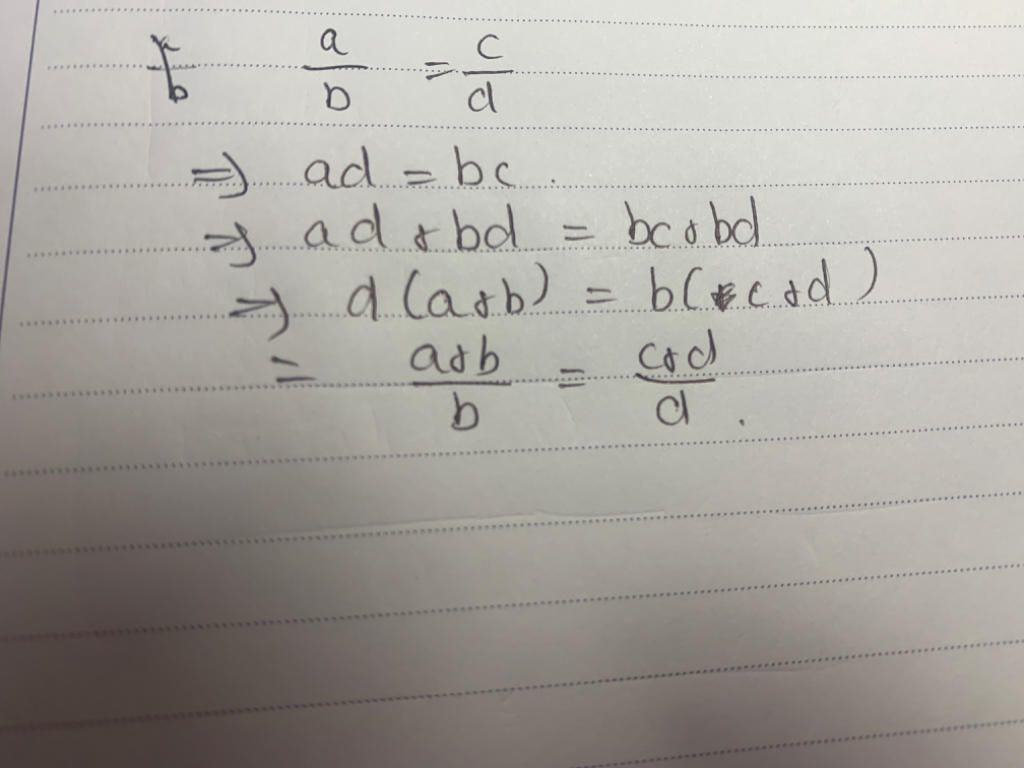 a/b = c/d
⇒ ad = bc.
⇒ ad + bd = bc + bd
⇒ d(a+b) = b(c+d)
= (a+b)/b = (c+d)/d.